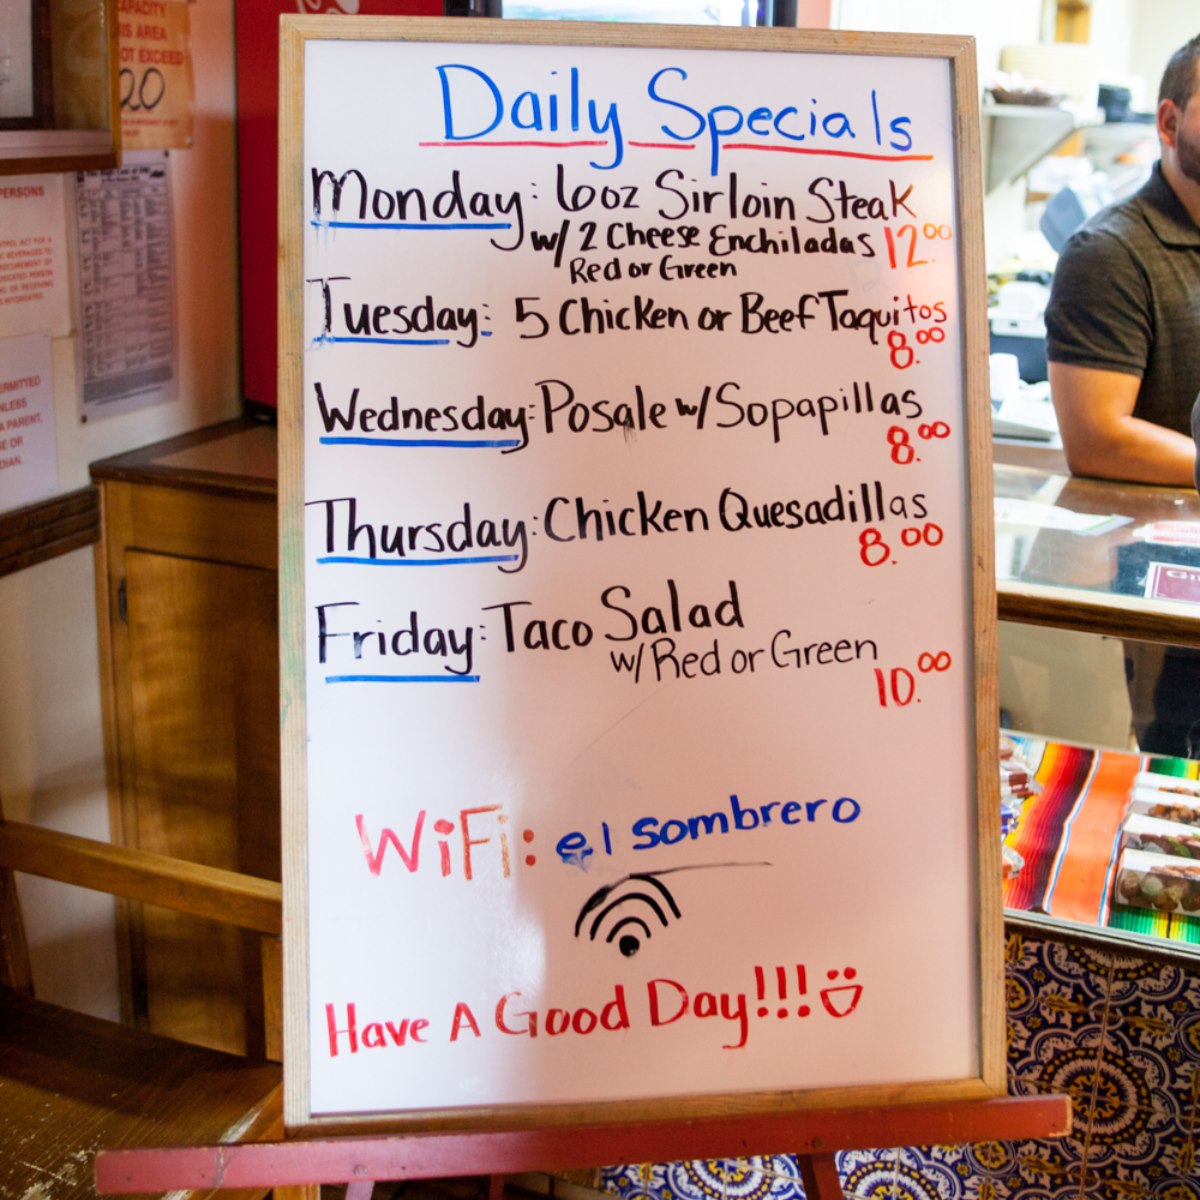 CAPACITY
IS AREA
OT EXCEED
20
PERSONS
Daily Specials
Monday: 6oz Sirloin Steak
w/ 2 Cheese Enchiladas 12.00
Red or Green
Tuesday: 5 Chicken or Beef Taquitos
8.00
Wednesday: Posale w/ Sopapillas
8.00
Thursday: Chicken Quesadillas
8.00
Friday: Taco Salad
w/ Red or Green
10.00
WiFi: el sombrero
Have A Good Day!!!